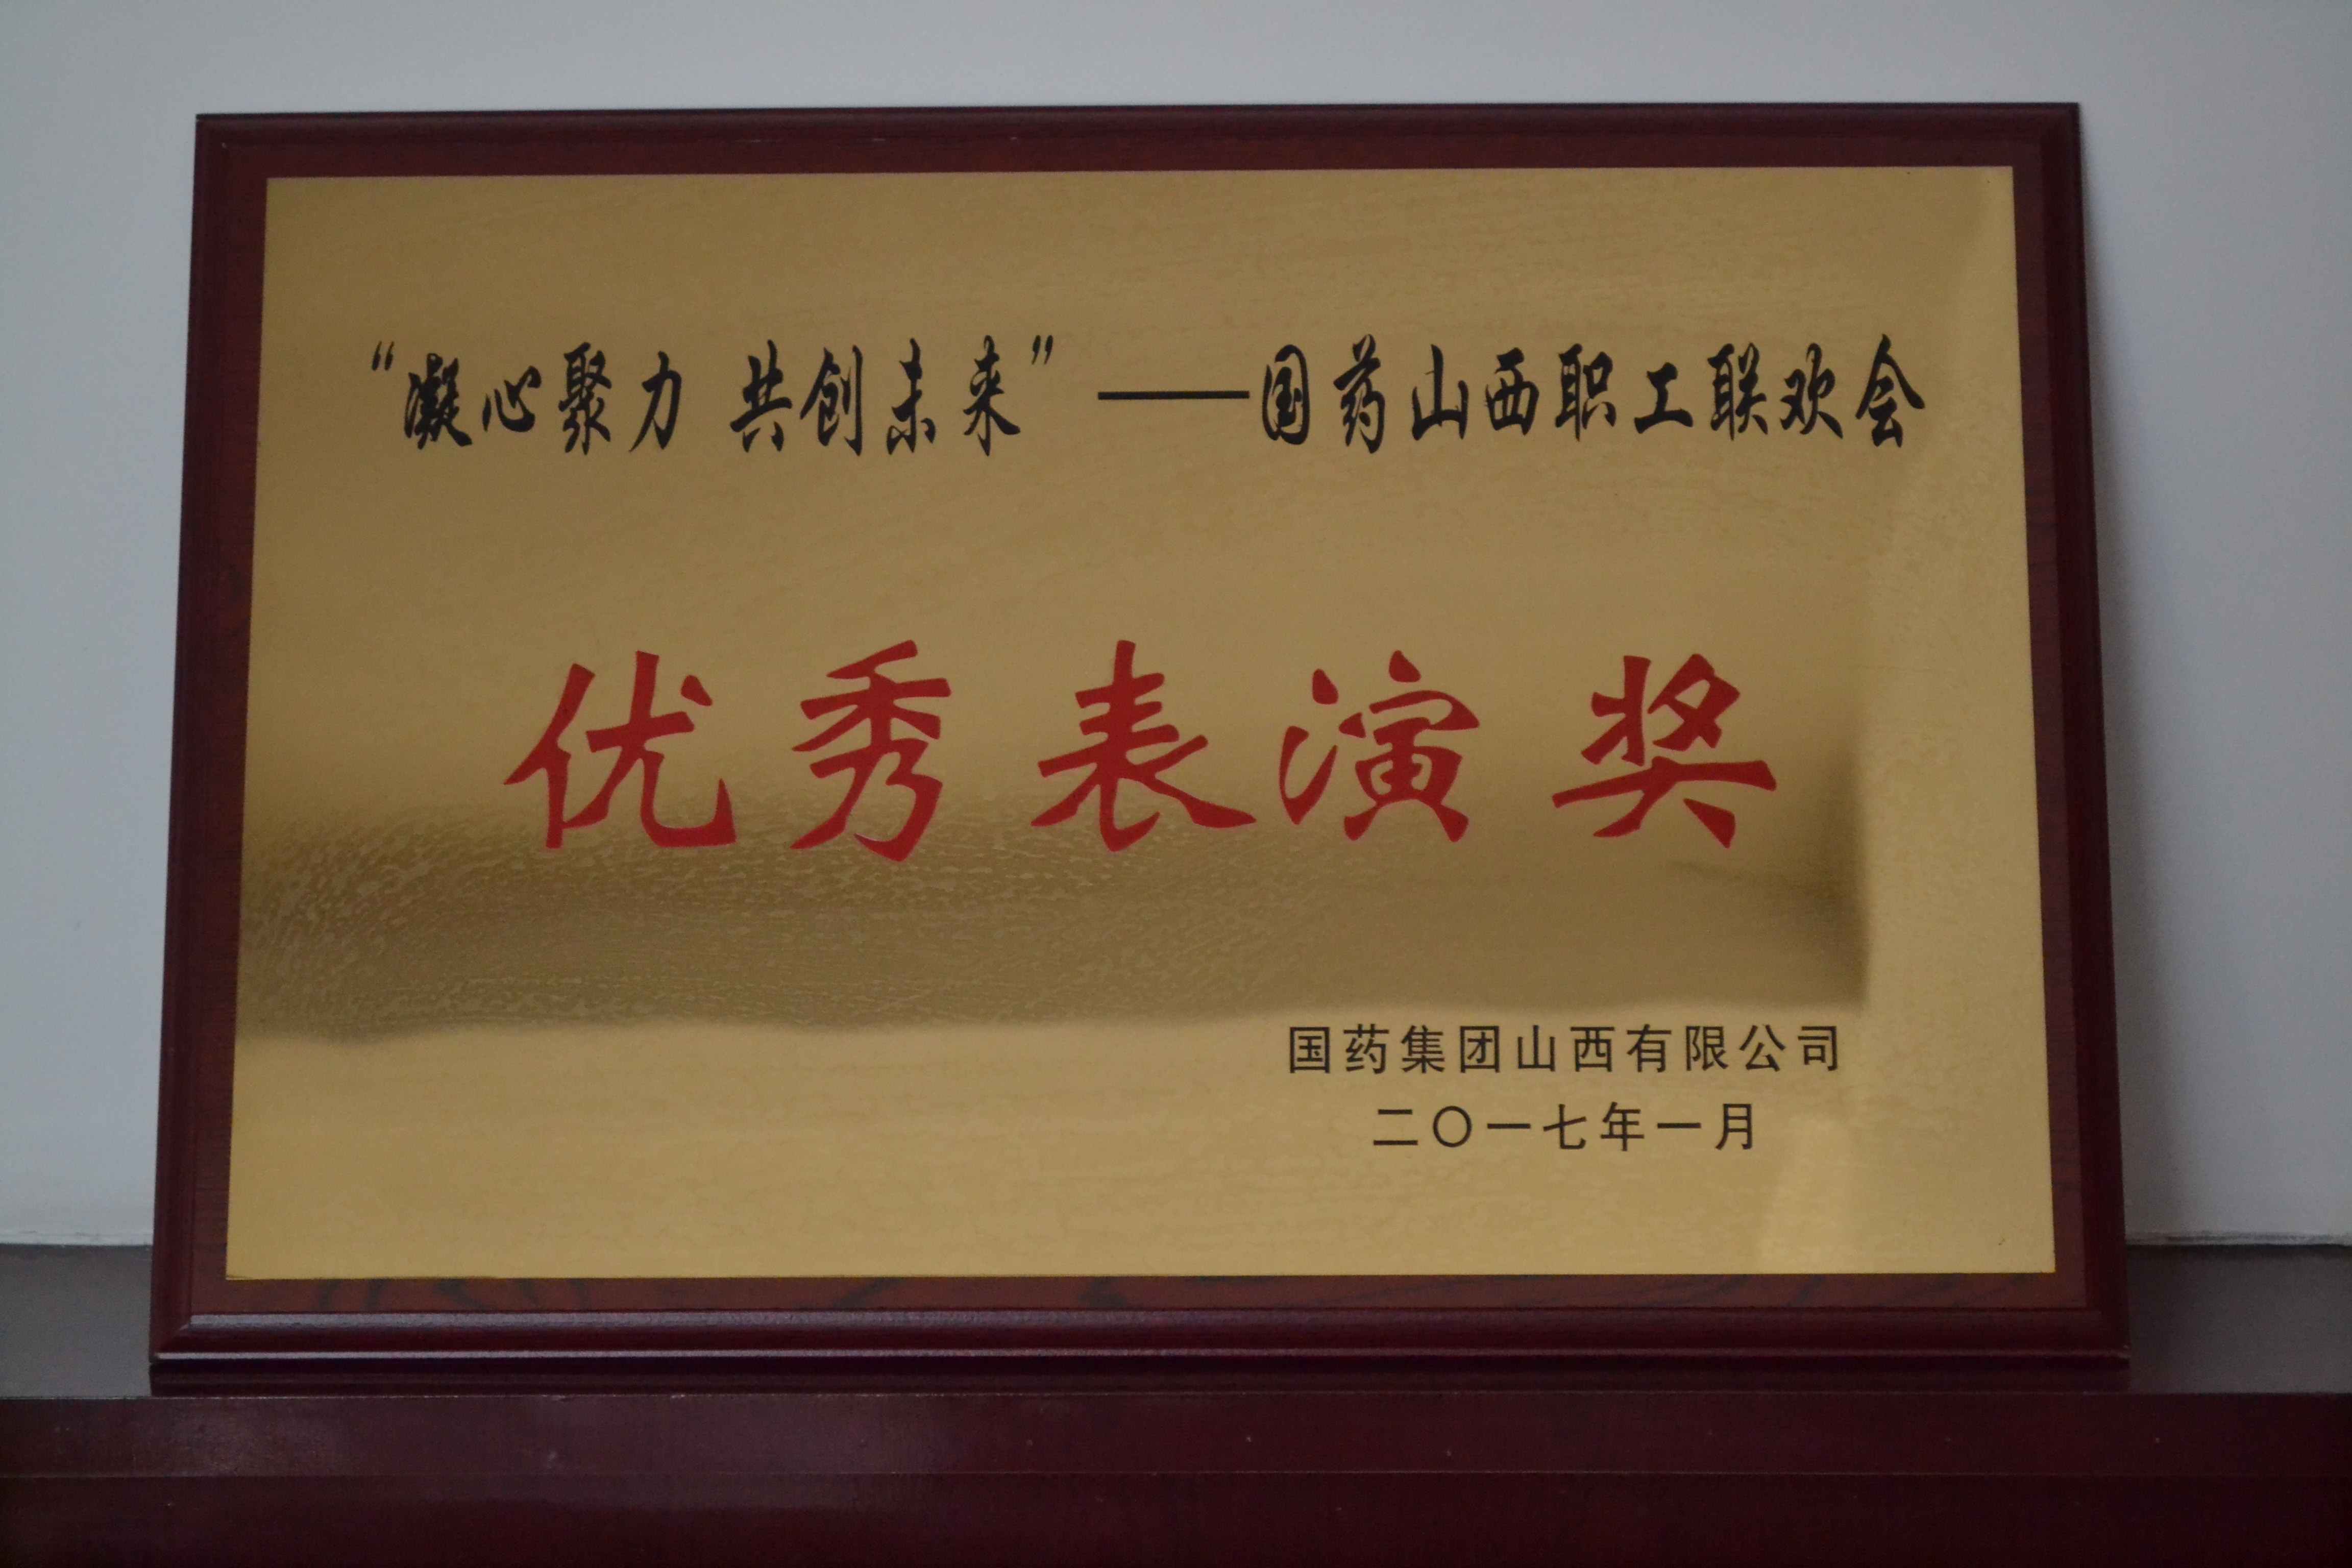 “凝心聚力 共创未来”——国药山西职工联欢会
优秀表演奖
国药集团山西有限公司
二〇一七年一月